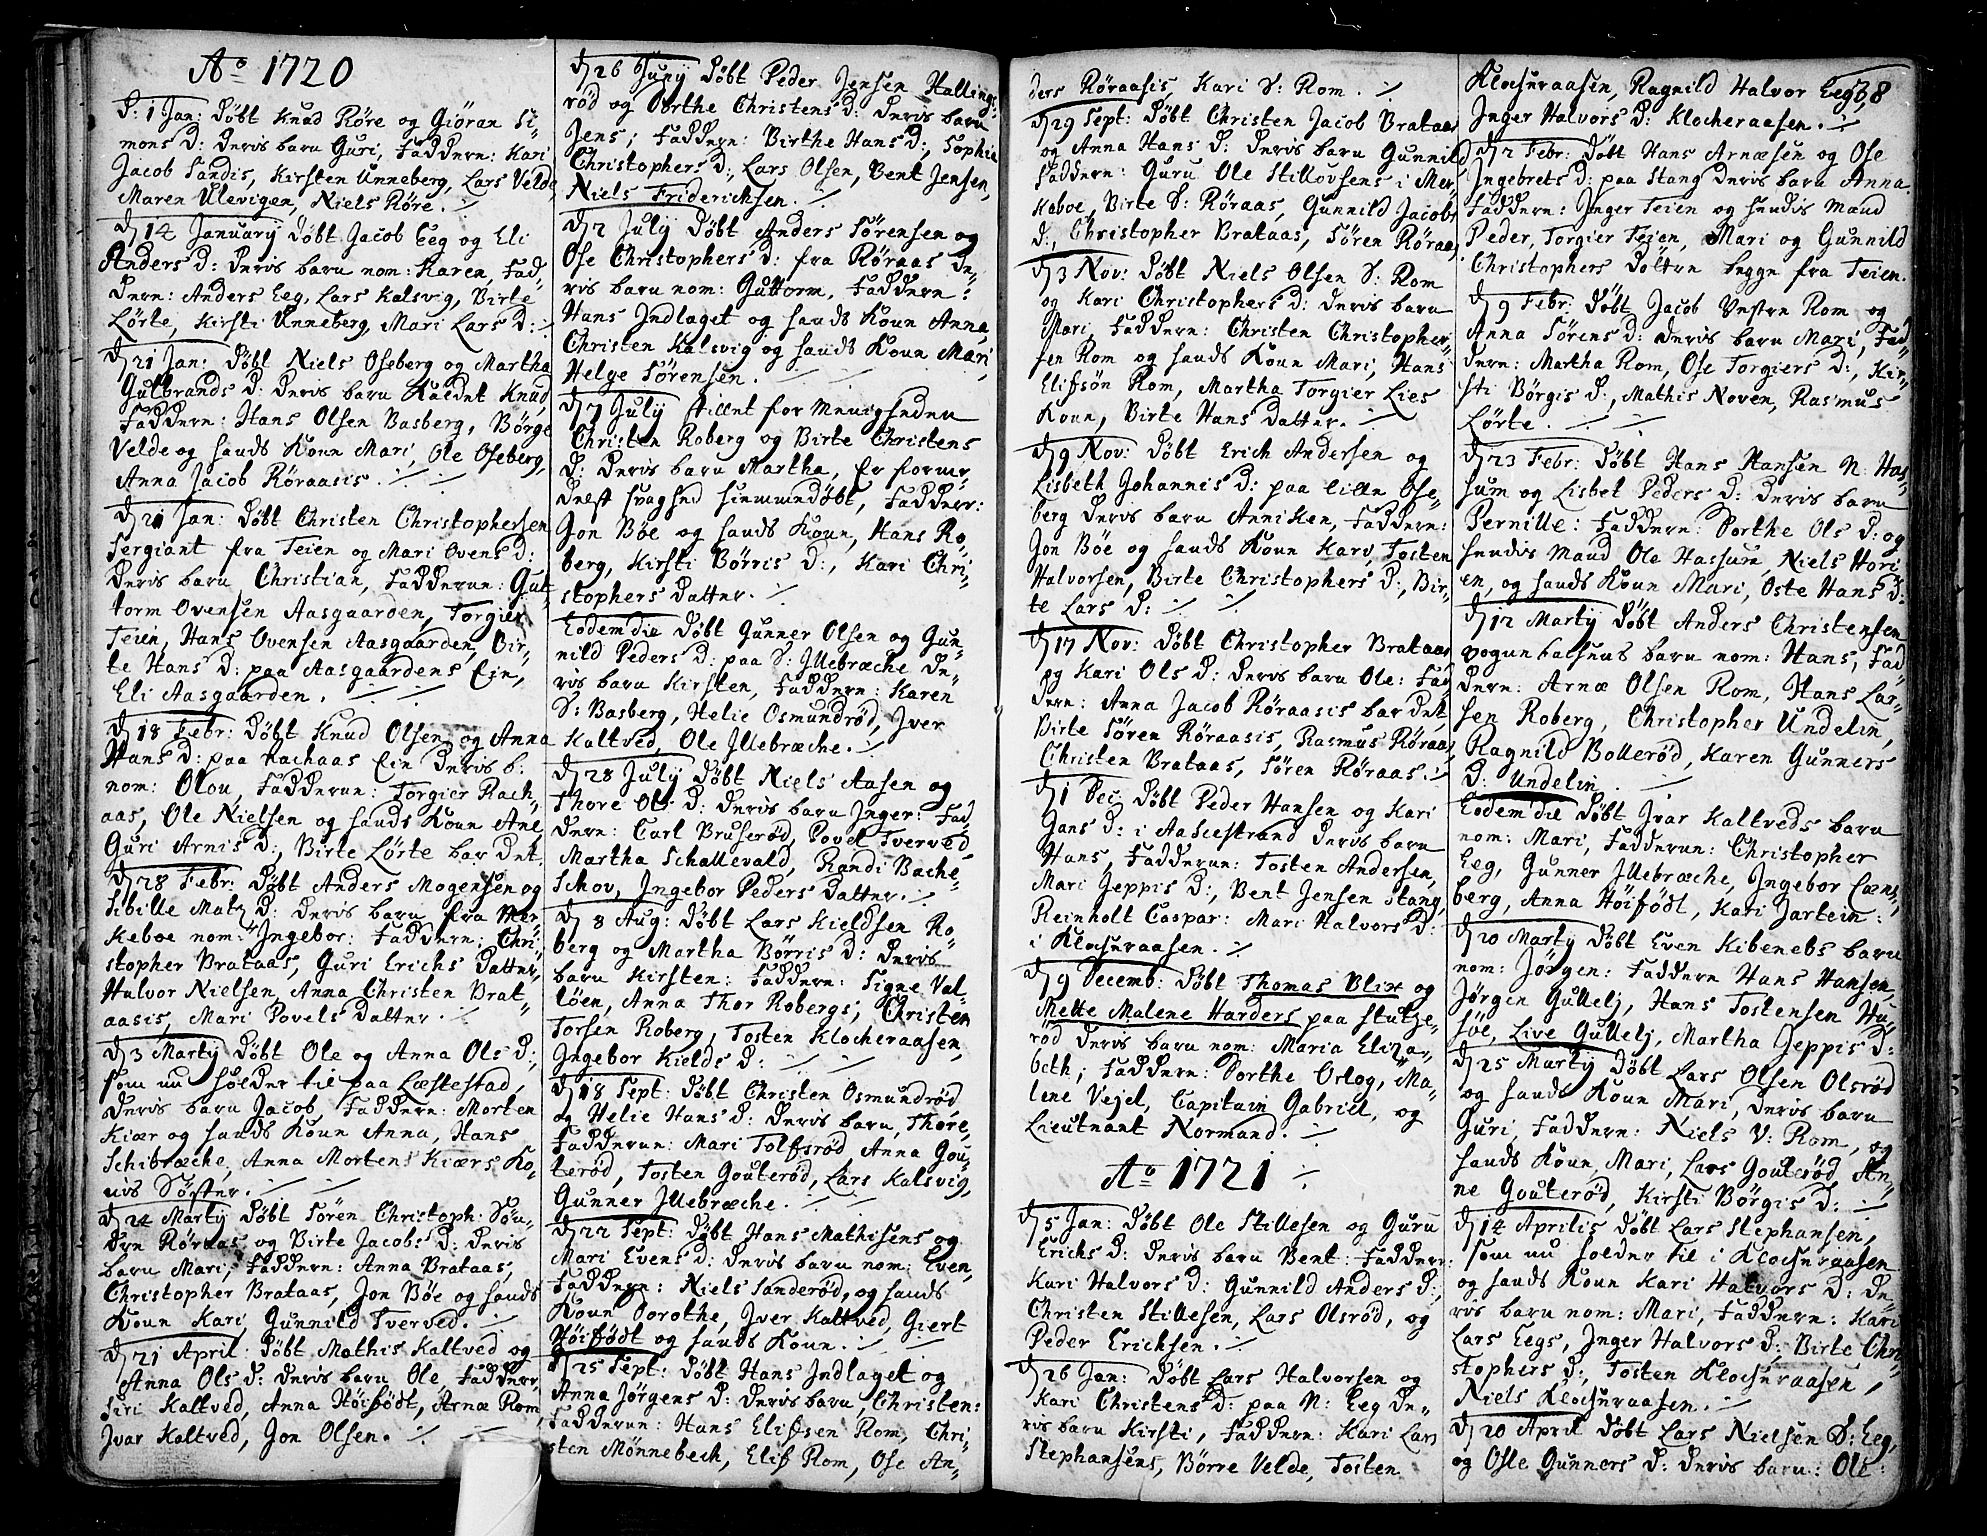 Ao 1720
D: 1 Jan: Døbt Knud Røre og Giøran Si-
mons D: deris barn Guri, Faddere: Kari
Jacob Sandis, Kirsten Unneberg, Lars Velde,
Maren Ulevigen, Niels Røre.
D 14 January Døbt Jacob Eeg og Eli
Anders D: deris barn nom: Karen, Fad-
dere: Anders Eeg, Lars Kalsvig, Birte
Lørte, Kirsti Unneberg, Mari Lars D:
D 21 Jan: Døbt Niels Oseberg og Martha
Gulbrands D: deris barn kaldet Knud,
Faddere: Hans Olsen Basberg, Børge
Velde og hands Kone Mari, Ole Oseberg,
Anna Jacob Røraasis.
D 21 Jan: Døbt Christen Christophersen
Sergiant fra Teien og Mari Ovens D:
deris barn Christian, Fadderne: Gut-
torm Ovensen Aasgaarden, Torgier
Teien, Hans Ovensen Aasgaarden, Bir-
te Hans D: paa Aasgaardens Eie,
Eli Aasgaarden.
D 18 Febr: Døbt Knud Olsen og Anna
Hans D: paa Rachaas Eie deris b:
nom: Olou, Fadderne: Torgier Rach-
aas, Ole Nielsen og hands Kone Ane
Guri Arnis D:, Birte Lørte bar det.
D 28 Febr: Døbt Anders Mogensen og
Sibille Matz D: deris barn fra Mer-
keboe nom: Ingebor: Faddere: Chri-
stopher Brataas, Guri Erichs Datter,
Halvor Nielsen, Anna Christen Brat-
aasis, Mari Povels Datter.
D 3 Marty Døbt Ole og Anna Ols D:,
som nu holder til paa Læstestad,
deris barn Jacob, Faddere: Morten
Kiær og hands Kone Anna, Hans
Schibræche, Anna Mortens Kiærs Ko-
nis Søster.
D 24 Marty Døbt Søren Christoph. Søn-
dre Røraas og Birte Jacobs D: deris
barn Mari, Faddere: Anna Brataas,
Christopher Brataas, Jon Bøe og hands
Kone Kari, Gunnild Tverved.
D 21 April: Døbt Mathis Kaltved og
Anna Ols D: deris barn Ole, Faddere,
Siri Kaltved, Anna Høifødt, Arnæ Rom,
Ivar Kaltved, Jon Olsen.
D 26 Juny Døbt Peder Jensen Hallings-
rød og Dorthe Christens D: deris barn
Jens; Faddere: Birthe Hans D:, Sophie
Christophers D:, Lars Olsen, Bent Jensen,
Niels Friderichsen.
D 2 July Døbt Anders Sørensen og
Ose Christophers D: fra Røraas de-
ris barn nom: Guttorm. Faddere:
Hans Indlaget og hands Kone Anna,
Christen Kalsvig og hands Kone Mari,
Helge Sørensen.
D 7 July stillet for Menigheden
Christen Roberg og Birte Christens
D: deris barn Martha, er former-
delst svaghed hiemmedøbt, Faddere:
Jon Bøe og hands Kone, Hans Ro-
berg, Kirsti Børris D:, Kari Chri-
stophers Datter.
Eodem die Døbt Gunner Olsen og Gun-
nild Peders D: paa S: Illebræche de-
ris barn Kirsten, Faddere: Karen
S: Basberg, Helie Osmundrød, Iver
Kaltved, Ole Illebræche.
D 28 July Døbt Niels Aasen og
Thore Ols D: deris barn Inger: Fad-
dere: Carl Bruserød, Povel Tverved,
Martha Schallevald, Randi Bache-
Schov, Ingebor Peders Datter.
D 8 Aug: Døbt Lars Kieldsen Ro-
berg og Martha Børris D: deris
barn Kirsten: Faddere: Signe Val-
løen, Anna Thor Robergs; Christen
Torsen Roberg, Tosten Klocheraasen,
Ingebor Kields D:
D 18 Sept: Døbt Christen Osmundrød
og Helie Hans D: deris barn, Thore,
Fadderne: Mari Tolfsrød, Anna Gou-
terød, Tosten Gouterød, Lars Kalsvig,
Gunner Illebræche.
D 22 Sept: Døbt Hans Mathisens og
Mari Evens D: deris barn nom: Even,
Faddere: Niels Sanderød, og hands
Kone Dorothe, Iver Kaltved, Giert
Høifødt og hands Kone.
D 25 Sept: Døbt Hans Indlaget og
Anna Jørgens D: deris barn, Christen:
Fadderne: Hans Elifsen Rom, Chri-
sten Mønnebech, Elif Rom, Ose An-
ders Røraasis, Kari S: Rom.
D 29 Sept: Døbt Christen Jacob Brataas
og Anna Hans D: deris barn Gunnild
Faddere: Guru Ole Stillovsens i Mer-
keboe, Birte S: Røraas, Gunnild Jacobs
D:, Christopher Brataas, Søren Røraas,
D 3 Nov: Døbt Niels Olsen S: Rom
og Kari Christophers D: deris barn
Mari, Faddere: Christen Christopher-
sen Rom og hands Kone Mari, Hans
Elifsøn Rom, Martha Torgier Lies
Kone, Birte Hans Datter.
D 9 Nov: Døbt Erich Andersen og
Lisbeth Johannis D: paa lille Ose-
berg deris barn Anniken, Faddere:
Jon Bøe og hands Kone Kari, Tosten
Halvorsen, Birte Christophers D:, Bir-
te Lars D:
D 17 Nov: Døbt Christopher Brataas
og Kari Ols D: deris barn Ole: Fad-
dere: Anna Jacob Røraasis bar det,
Birte Søren Røraasis, Rasmus Røraas,
Christen Brataas, Søren Røraas.
D 1 Dec: Døbt Peder Hansen og Kari
Jans D: i Aascestrand deris barn
Hans, Fadderne: Tosten Andersen,
Mari Jeppis D:, Bent Jensen Stang,
Reinholt Caspar: Mari Halvors D:
i Klocheraasen.
D 9 Decemb: Døbt Thomas Blix og
Mette Malene Harders paa Stutze-
rød deris barn nom: Maria Eliza-
beth; Faddere: Dorthe Oslog, Ma-
lene Vejel, Capitain Gabriel, og
Lieutnant Normand.
Ao 1721
D 5 Jan: Døbt Ole Stillesen og Guru
Erichs D: deris barn Bent: Faddere:
Kari Halvors D: Gunnild Anders D:,
Christen Stillesen, Lars Olsrød, og
Peder Erichsen.
D 26 Jan: Døbt Lars Halvorsen og
Kari Christens D: paa N: Eeg de-
ris barn Kirsti, Faddere: Kari Lars
Stephansens, Børre Velde, Tosten
Klocheraasen, Ragnild Halvor Eegs, 38
Inger Halvors D: Klocheraasen.
D 2 Febr: Døbt Hans Arnæsen og Ose
Ingebrets D: paa Stang deris barn Anna.
Faddere: Inger Teien og hendis Mand
Peder, Torgier Teien, Mari og Gunnild
Christophers Døttre begge fra Teien.
D 9 Febr: Døbt Jacob Vestre Rom og
Anna Sørens D: deris barn Mari, Fad-
dere: Martha Rom, Ose Torgiers D:, Kir-
sti Børgis D:, Mathis Noven, Rasmus
Lørte.
D 23 Febr: Døbt Hans Hansen N: Has-
sum og Lisbet Peders D: deris barn
Pernille: Faddere: Dorthe Ols D: og
hendis Mand Ole Hassum, Niels Hori-
en, og hands Kone Mari, Oste Hans D:
D 12 Marty Døbt Anders Christensen
vogenbachens barn nom: Hans, Fad-
dere: Arnæ Olsen Rom, Hans Lar-
sen Roberg, Christopher Undelin,
Ragnild Bollerød, Karen Gunners
D: Undelin.
Eodem die Døbt Ivar Kaltveds barn
nom: Mari, Fadderne: Christopher
Eeg, Gunner Illebræche, Ingebor Læns-
berg, Anna Høifødt, Kari Jartein:
D 20 Marty Døbt Even Kibenebs barn
nom: Jørgen: Faddere Hans Hansen,
Jørgen Gullelj, Hans Tostensen Hu-
søe, Live Gullelj, Martha Jeppis D:
D 25 Marty Døbt Lars Olsen Olsrød
og hands Kone Mari, deris barn
Guri, Faddere: Niels V: Rom, og
hands Kone, Mari, Lars Gouterød, An-
ne Gouterød, Kirsti Børgis D:
D 14 Aprilis Døbt Lars Stephansen,
som nu holder til i Klocheraasen
og hands Kone Kari Halvors D: de-
ris barn nom: Mari, Faddere: Kari
Lars Eegs, Inger Halvors D:, Birte Chri-
stophers D:, Tosten Klocheraasen,
Niels Klocheraasen.
D 20 April Døbt Lars Nielsen S: Eeg,
og Osle Gunners D: deris barn: Ole: